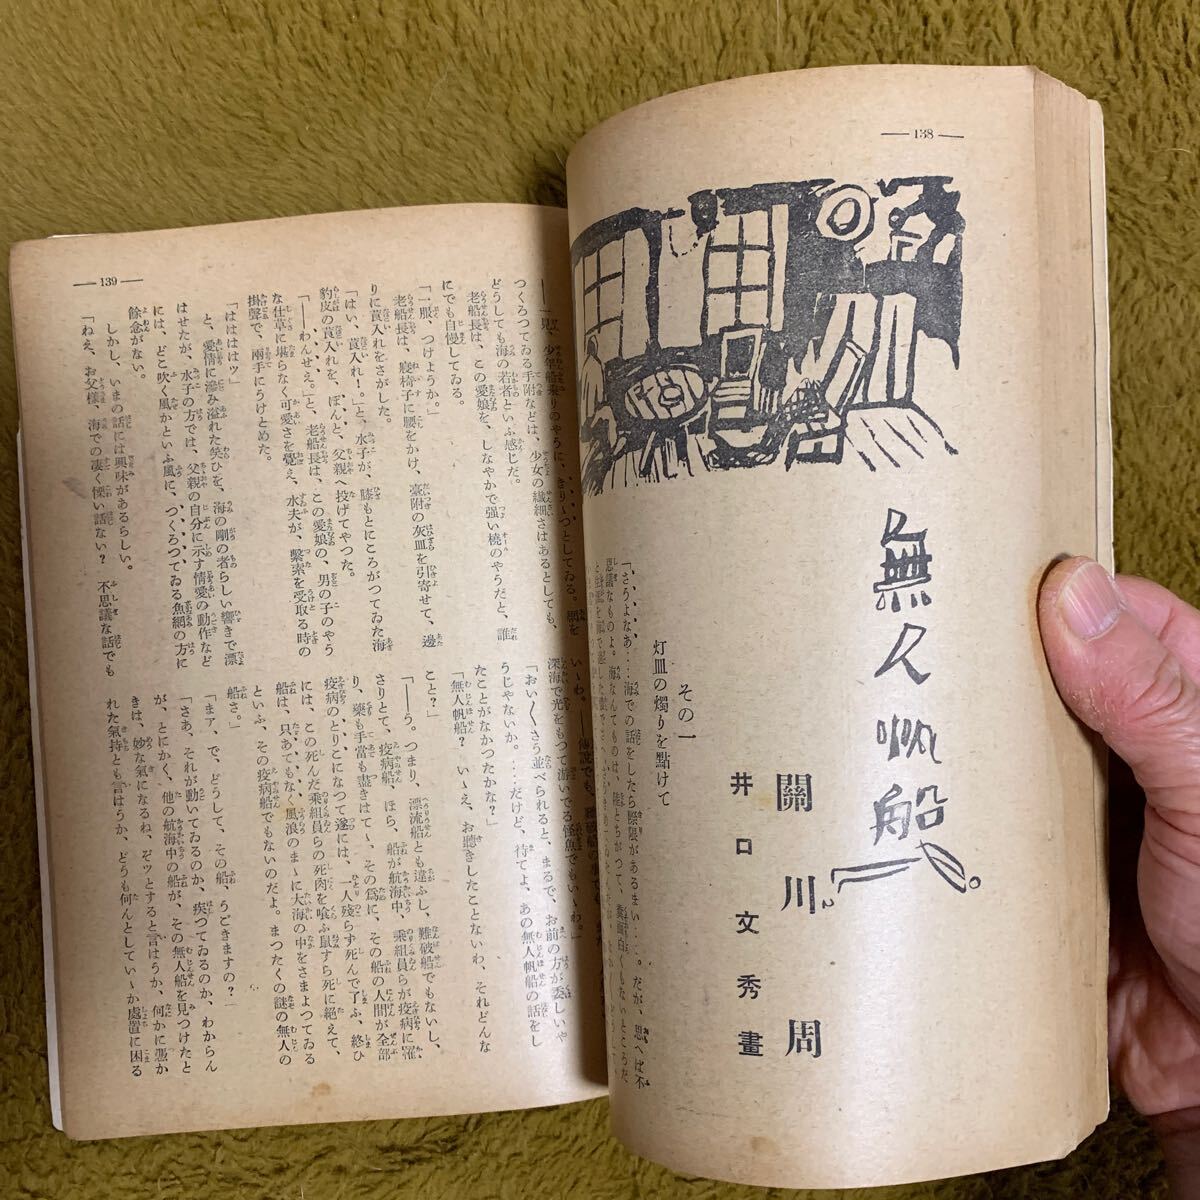 138
無人帆船
關川周
井口文秀畫
その一
灯皿の燭りを點けて
「さうよなあ‥‥海での話をしたら際限があるまい‥‥。だが、思へば不
思議なものよ。海なんてものは、陸とちがつて、糞面白くもないところだ
139
――一見、少年船乘りのやうに、きり〱つとしてゐる。網を
つくろつてゐる手附などは、少女の纎細さはあるとしても、
どうしても海の若者といふ感じだ。
老船長は、この愛娘を、しなやかで强い橈のやうだと、誰
にでも自慢してゐる。
「一服、つけようか。」
老船長は、寢椅子に腰をかけ、臺附の灰皿を引寄せて、邊
りに莨入れをさがした。
「はい、莨入れ！」と、水子が、膝もとにころがつてゐた海
豹皮の莨入れを、ぽんと、父親へ投げてやつた。
「――わんせえ。」と、老船長は、この愛娘の、男の子のやう
な仕草に堪らなく可愛さを覺え、水夫が、繫索を受取る時の
掛聲で、兩手にうけとめた。
「はははは ッ」
と、愛情に滲み溢れた笑ひを、海の剛の者らしい響きで漂
はせたが、水子の方では、父親の自分に示す情愛の動作など
には、どこ吹く風かといふ風に、つくろつてゐる魚網の方に
餘念がない。
しかし、いまの話には興味があるらしい。
「ねえ、お父樣、海での凄く慄い話ない？　不思議な話でも
い〻わ。――傳說でも、
深海で光をもつて游いでる怪魚でもい〻わ。」
「おい〱さう並べられると、まるで、お前の方が委しいや
うじやないか。‥‥だけど、待てよ、あの無人帆船の話をし
たことがなかつたかな？」
「無人帆船？　い〻え、お聽きしたことないわ、それどんな
こと？」
「――う。つまり、漂流船とも違ふし、難破船でもないし、
さりとて、疫病船、ほら、船が航海中、乘組員らが疫病に罹
り、藥も手當も盡きはて〻、その爲に、その船の人間が全部
疫病のとりこになつて遂には、一人殘らず死んで了ふ、終ひ
には、この死んだ乘組員らの死肉を喰ふ鼠すら死に絕えて、
船は、只あてもなく風浪のま〻に大海の中をさまよつてゐる
といふ、その疫病船でもないのだよ。まつたくの謎の無人の
船さ。」
「まァ、で、どうして、その船、うごきますの？」
「さあ、それが動いてゐるのか、疾つてゐるのか、わからん
が、とにかく、他の航海中の船が、その無人船を見つけたと
きは、妙な氣になるね。ぞッとすると言はうか、何かに憑か
れた氣持とも言はうか、どうも何んとしてい〻か處置に困る